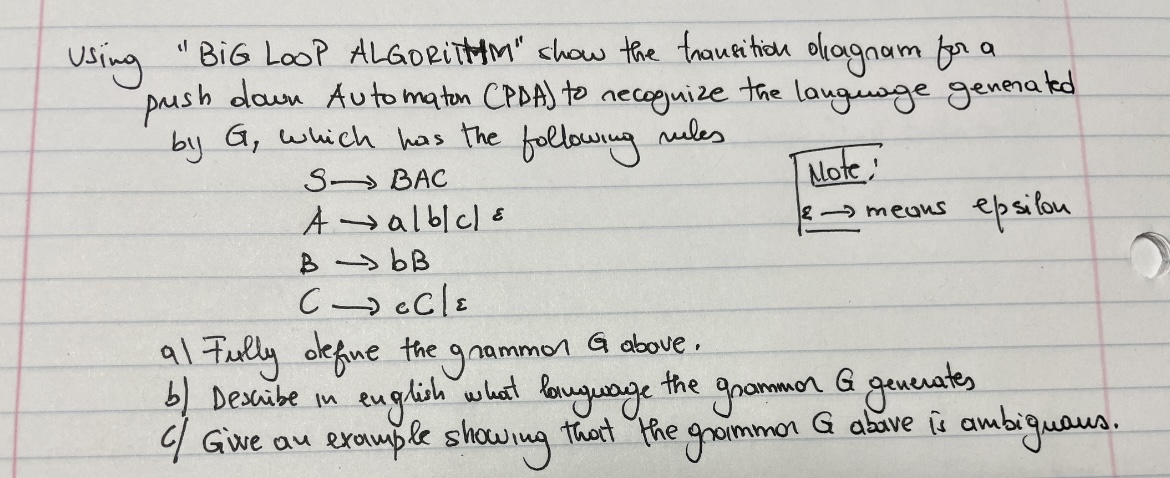 Using "BIG LOOP ALGORITHM" show the transition diagram for a
push down Automaton (PDA) to recognize the language generated
by G, which has the following rules
S → BAC
A → a|b|c| ε
B → bB
C → cC|ε
Note:
ε → means epsilon
a) Fully define the grammar G above.
b) Describe in english what language the grammar G generates
c) Give an example showing that the grammar G above is ambiguous.